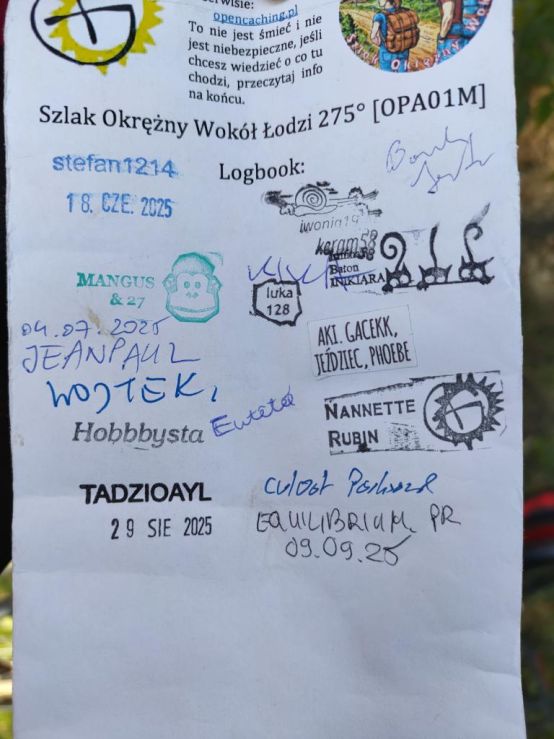 serwisie:
opencaching.pl
To nie jest śmieć i nie
jest niebezpieczne, jeśli
chcesz wiedzieć o co tu
chodzi, przeczytaj info
na końcu.
Szlak Okrężny Wokół Łodzi 275° [OPA01M]
stefan1214
18. CZE. 2025
Logbook:
iwonia19
keram58
Baton
INIKIARA
MANGUS
& 27
luka
128
04.07.2025
JEANPAUL
AKI. GACEKK,
JEŹDZIEC, PHOEBE
WOJTEK,
Hobbbysta
NANNETTE
RUBIN
TADZIOAYL
29 SIE 2025
EQUILIBRIUM PR
09.09.25